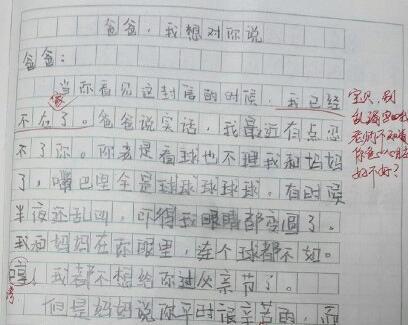 爸爸,我想对你说
爸爸:
当你看到这封信的时候,我已经
不在了。爸爸说实话,我最近有点忍
不了你。你老是看球也不理我和妈妈
了,嘴巴里全是球球球球球。有时候
半夜还乱叫,吓得我眼睛都变圆了。
我和妈妈在你眼里,连个球都不如。
哼!我都不想给你过父亲节了。
但是妈妈说你平时很辛苦的,而
宝贝,别
老师不知道
好不好?